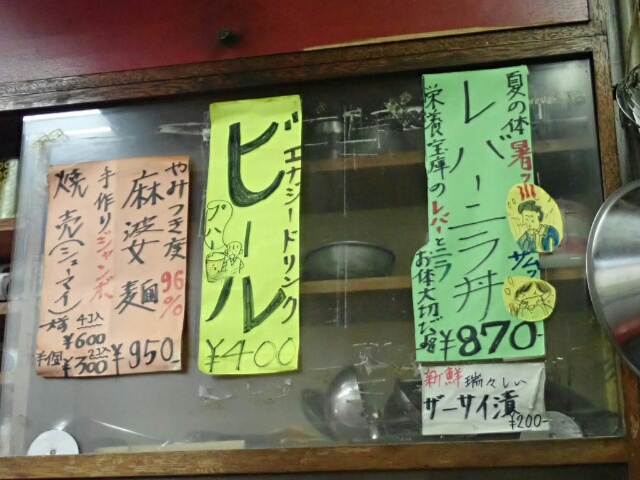 夏の体
暑ッ!!!
レバーニラ丼
栄養宝庫のレバーとニラ
お体大切に
¥870-
新鮮 瑞々しい
ザーサイ漬
¥200-
エナジードリンク
ビール
プハー
¥400
やみつき度
96%
麻婆麺
¥950-
手作りジャンボ
焼売(シューマイ)
4コ入
¥600
2コ入
¥300